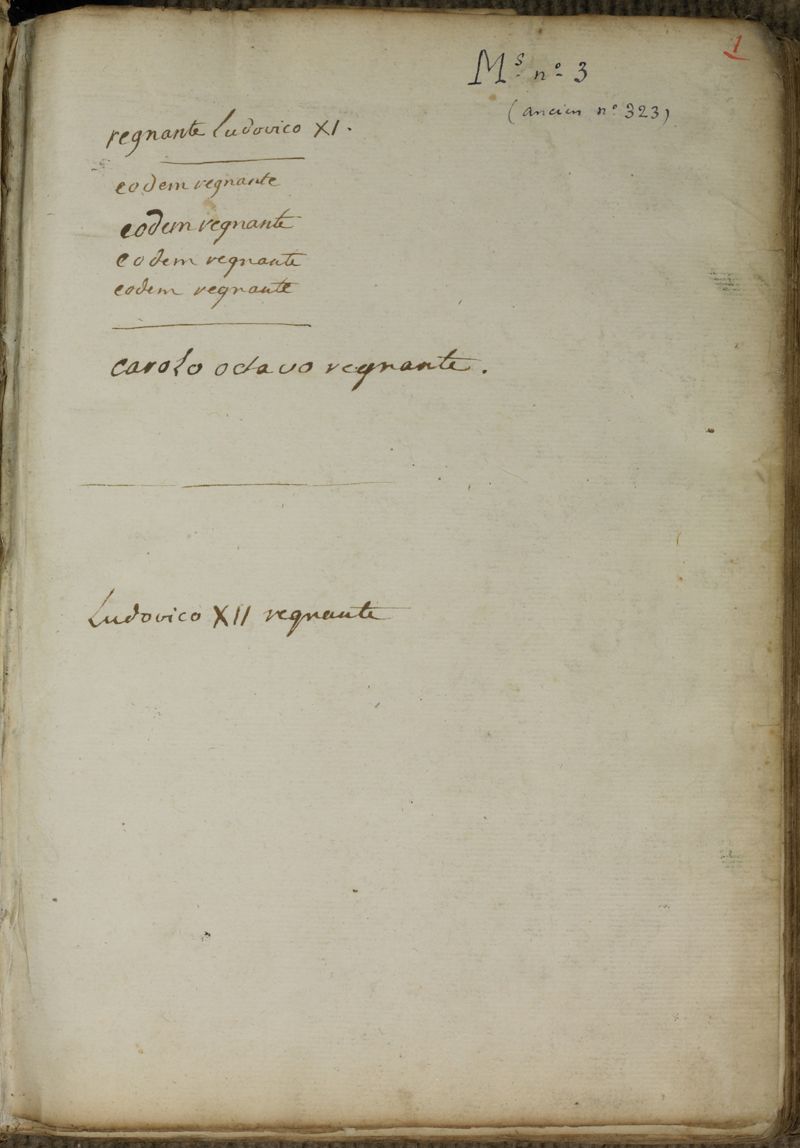 1
Ms. no. 3
(ancien no 323)
regnante Ludovico XI.
eodem regnante
eodem regnante
eodem regnante
eodem regnante
carolo octavo regnante.
Ludovico XII regnante